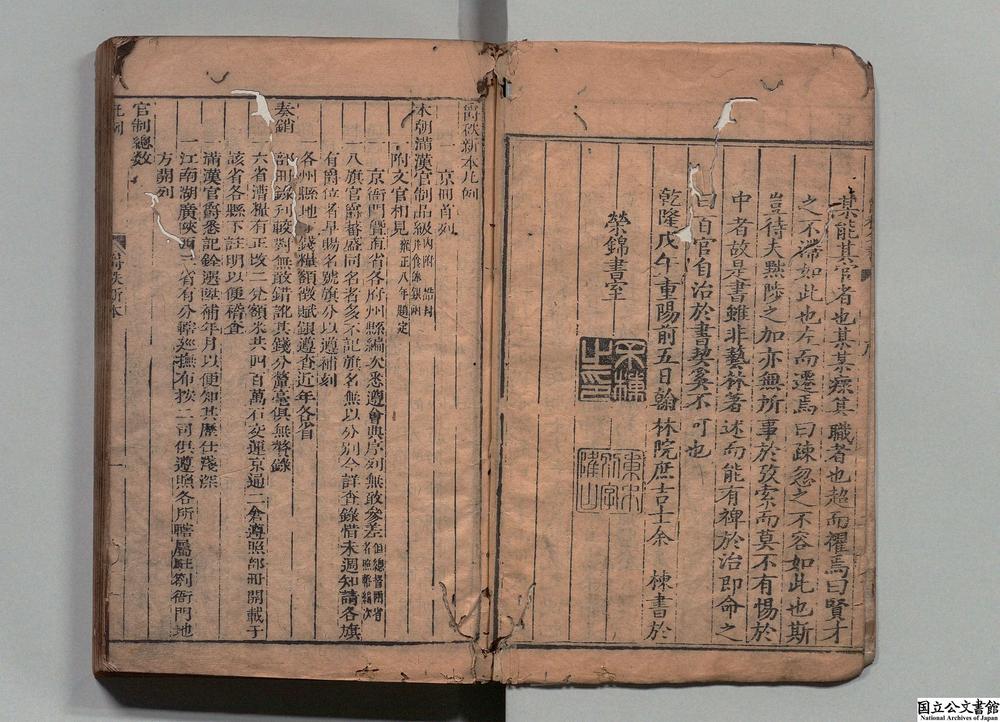 某能其官者也其某瘝其職者也超而擢焉曰賢才
之不滯如此也左而遷焉曰疎忽之不容如此也斯
豈待大黜陟之加亦無所事於攷索而莫不有惕於
中者故是書雖非藝林著述而能有裨於治即命之
曰百官自治於書契奚不可也
乾隆戊午重陽前五日翰林院庶吉士余 棟書於
榮錦書室
爵秩新本凡例
一京冊首列
本朝滿漢官制品級
附文官相見雍正八年題定
一京衙門暨直省各府州縣編次悉遵會典序列無敢參差但總督兩省
一八旗官爵蕃盛同名者多不記旗名無以分別今詳查錄惜未週知請各旗
有爵位者早賜名號旗分以遵補刻
各州縣地 錢糧額徵賦銀遵查近年各省
奏銷
部冊錄刊較對無敢錯訛其錢分釐毫俱無贅錄
一六省漕糧有正改二兌額米共四百萬石交運京通二倉遵照部冊開載于
該省各縣下註明以便稽查
一滿漢官爵悉記銓選陞補年月以便知其歷仕淺深
一江南湖廣陝西三省有分轄廵撫布按二司俱遵照各所轄屬駐劄衙門地
方開列
官制總數
凡例
爵秩新本
一
国立公文書館
National Archives of Japan